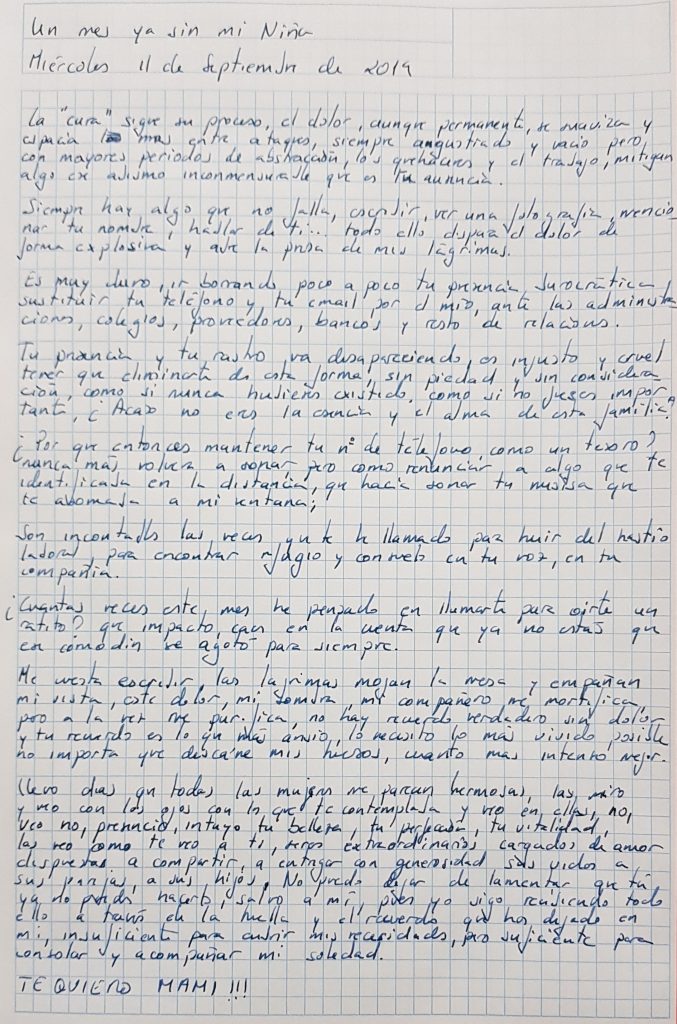 Un mes ya sin mi Niña
Miércoles 11 de Septiembre de 2019
La "cura" sigue su proceso, el dolor, aunque permanente, se suaviza y
espacia más entre ataques, siempre angustiado y vacío pero
con mayores periodos de abstracción, los quehaceres y el trabajo, mitigan
algo ese abismo inconmensurable que es tu ausencia.
Siempre hay algo que no falla, escribir, ver una fotografía, mencio
nar tu nombre, hablar de ti... todo ello dispara el dolor de
forma explosiva y abre la presa de mis lágrimas.
Es muy duro, ir borrando poco a poco tu presencia burocrática
sustituir tu teléfono y tu email, por el mío, ante las administra
ciones, colegios, proveedores, bancos y resto de relaciones.
Tu presencia y tu rastro, va desapareciendo, es injusto y cruel
tener que eliminarte de esta forma, sin piedad y sin considera
ción, como si nunca hubieras existido, como si no fueses impor
tante, ¿Acaso no eres la esencia y el alma de esta familia?
¿Por que entonces mantener tu nº de teléfono, como un tesoro?
nunca más volverá a sonar pero como renunciar a algo que te
identificaba en la distancia, que hacía sonar tu música que
te asomaba a mi ventana;
Son incontables las veces que te he llamado para huir del hastío
laboral, para encontrar refugio y consuelo en tu voz, en tu
compañía.
¿Cuántas veces este mes he pensado en llamarte para oirte un
ratito? que impacto, caer en la cuenta que ya no estás que
ese comodín se agotó para siempre.
Me cuesta escribir, las lágrimas mojan la mesa y empañan
mi vista, este dolor, mi sombra, mi compañero me mortifica,
pero a la vez me purifica, no hay recuerdo verdadero sin dolor
y tu recuerdo es lo que más ansío, lo necesito lo más vívido posible
no importa que descarne mis huesos, cuanto mas intenso mejor.
Llevo días que todas las mujeres me parecen hermosas, las miro
y veo con los ojos con los que te contemplaba y veo en ellas, no,
veo no, presencio, intuyo tu belleza, tu perfección, tu vitalidad,
las veo como te veo a ti, seres extraordinarios, cargados de amor
dispuestas a compartir, a entregar con generosidad sus vidas a
sus parejas, a sus hijos. No puedo dejar de lamentar que tú
ya no puedas hacerlo, salvo a mí, pues yo sigo recibiendo todo
ello a través de la huella y el recuerdo que has dejado en
mi, insuficiente para cubrir mis necesidades, pero suficiente para
consolar y acompañar mi soledad.
TE QUIERO MAMI !!!